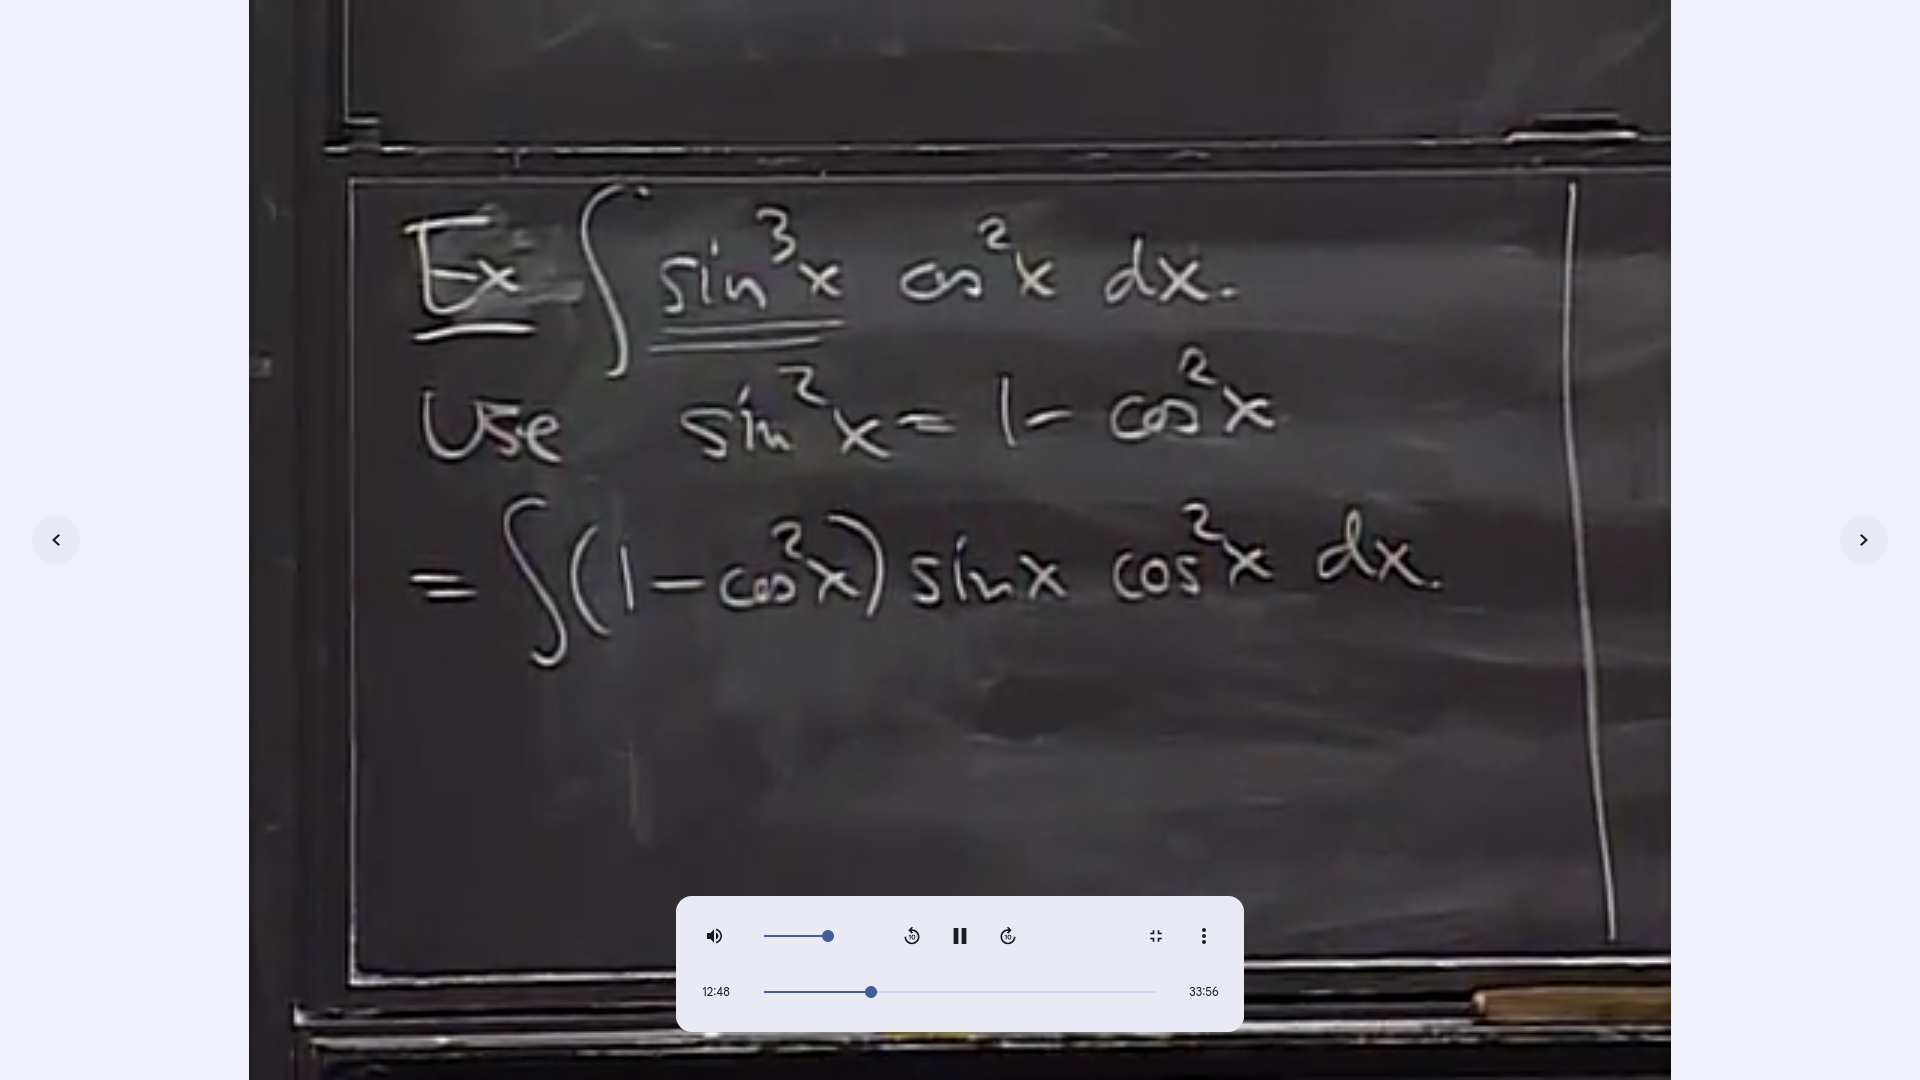 Ex ∫ sin³x cos²x dx.
Use sin²x = 1 - cos²x
= ∫(1 - cos²x) sinx cos²x dx.
10
10
12:48
33:56